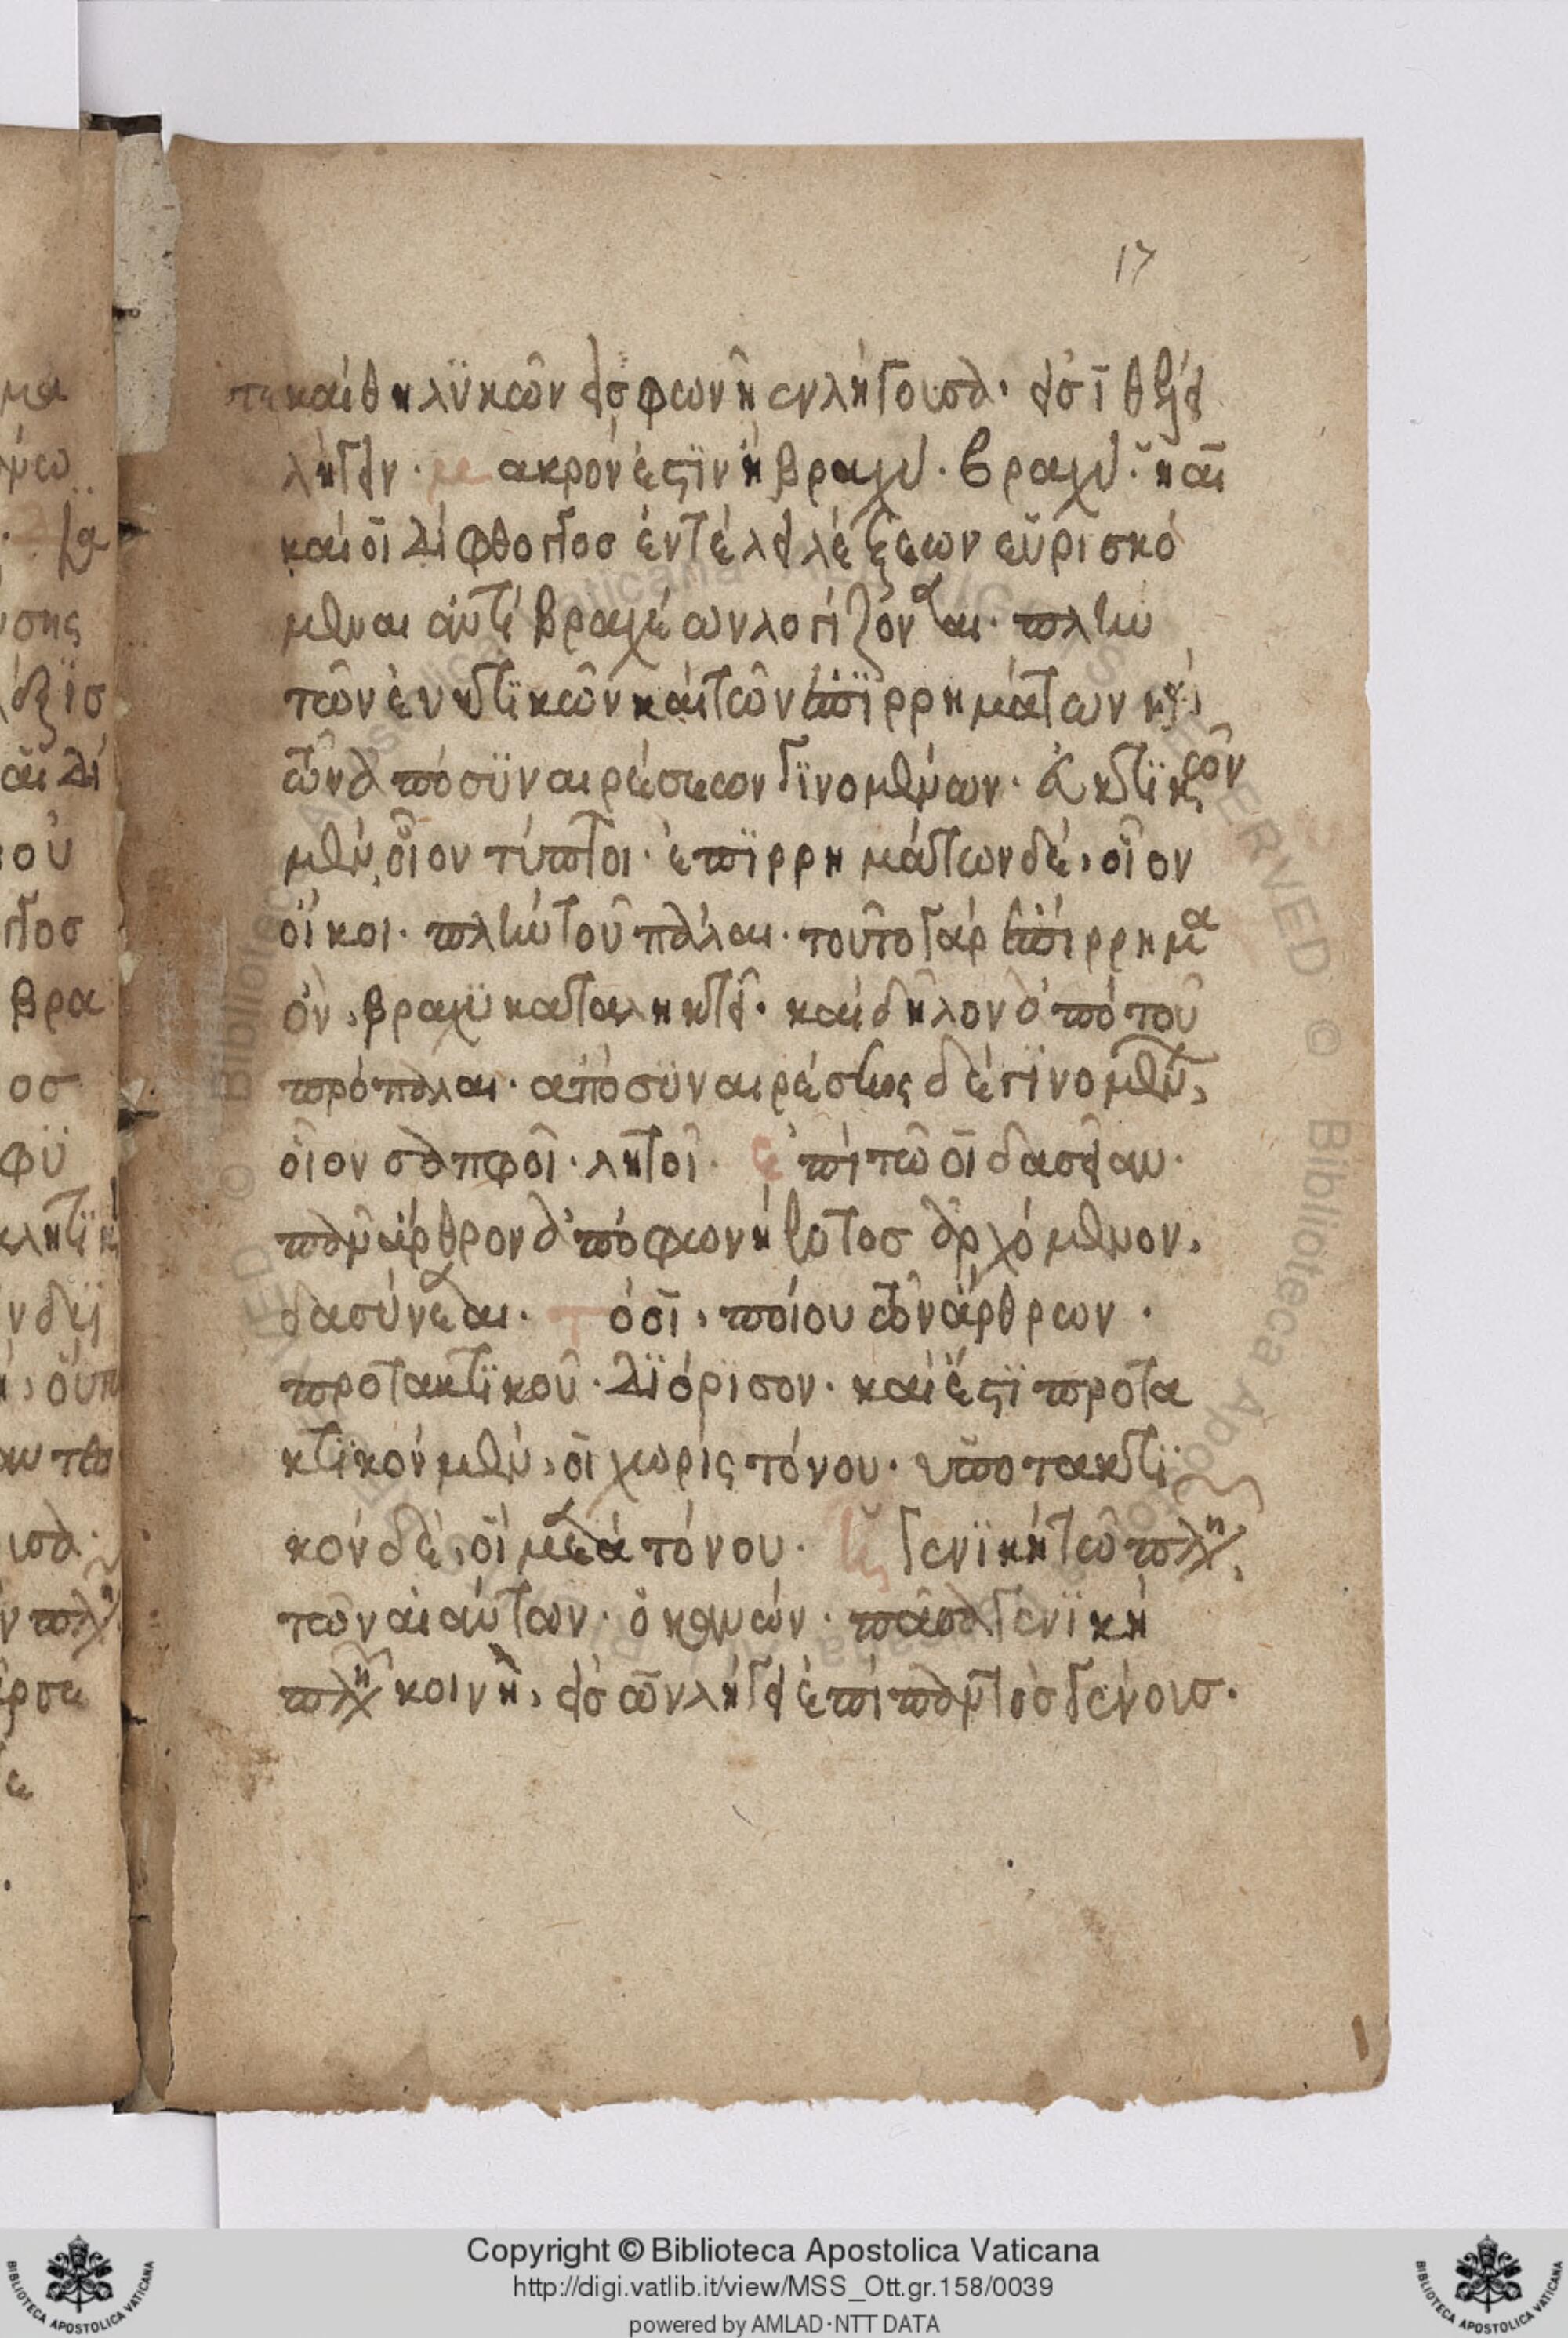 17
καὶ θηλϋκῶν εἰσ φωνῆεν λήγουσα· εἰσ ῑ θέλει
λήγειν· μακρόν ἐστϊν ἢ βραχύ· βραχύ· ἡ αῑ
καὶ οῑ δίφθογγοσ ἐν τέλει λέξεων εὑρισκό
μεναι ἀντὶ βραχέων λογίζονται· πλὴν
τῶν εὐκτϊκῶν καὶ τῶν ἐπϊρρημάτων καὶ
τῶν ἀπὸ συναιρέσεων γϊνομένων· εὐκτϊκῶν
μὲν, οἷον τύπτοι· ἐπϊρρημάτων δὲ, οἷον
οἴκοι· πλὴν τοῦ πάλαι· τοῦτο γὰρ ἐπίρρημα
ὂν, βραχϋκαταληκτεῖ· καὶ δῆλον ἀπὸ τοῦ
πρόπαλαι· ἀπὸ συναιρέσεως δὲ γινομένων,
οἷον σαπφοῖ· λητοῖ· ἐπὶ τῶ οῑ δασεῖαν·
πᾶν ἄρθρον ἀπὸ φωνήεντοσ ἀρχόμενον,
δασύνεται· τὸ οῑ, ποίου τῶν ἄρθρων·
προτακτϊκοῦ· διόρϊσον· καὶ ἔστϊ προτα
κτϊκόν μὲν, οῑ χωρὶς τόνου· ὑποτακτϊ
κὸν δὲ, οἵ μετὰ τόνου· γενϊκὴ τῶν πλη,
τῶν αἰάντων· ὁ κανών· πᾶσα γενϊκὴ
πλη κοινὴ, εἰσ ων λήγει ἐπὶ παντὸσ γένουσ·
Copyright © Biblioteca Apostolica Vaticana
http://digi.vatlib.it/view/MSS_Ott.gr.158/0039
powered by AMLAD·NTT DATA